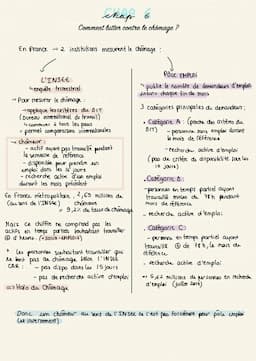 CHAP 6
Comment lutter contre le chômage ?
En France → 2 institutions mesurent le chômage :
L'INSEE
↳ enquête trimestriel
→ Pour mesurer le chômage :
→ applique les critères du BIT
(bureau international du travail)
↳ commun à tous les pays
↳ permet comparaisons internationales
→ chômeur :
- actif ayant pas travaillé pendant
la semaine de référence
- disponible pour prendre un
emploi dans les 15 jours
- recherche active d'un emploi
durant le mois précédent
En France métropolitaine, 2,65 millions de
(au sens de l'INSEE) chômeurs
= 9,2% de taux de chômage
Mais ce chiffre ne comprend pas les
actifs en temps partiel souhaitant travailler
Les personnes souhaitant travailler que
ne sont pas au chômage selon l'INSEE
CAR : - pas dispo dans les 15 jours
- pas de recherche active d'emploi
=> Halo du chômage
PÔLE EMPLOI
↳ publie le nombre de demandeurs d'emploi
inscrits chaque fin de mois
3 catégories principales de demandeurs :
Catégorie A : (proche des critères du
BIT)
- personnes sans emploi durant
le mois de référence
- recherche active d'emploi
(pas de critère de disponibilité sous les
15 jours)
Catégorie B :
- personnes en temps partiel ayant
travaillé moins de 78h pendant
mois de référence
- recherche active d'emploi
Catégorie C :
- personnes en temps partiel ayant
travaillé + de 78h, le mois de
référence
- recherche active d'emploi
→ 5,62 millions de personnes en recherche
d'emploi (juillet 2019)
Donc un chômeur au sens de l'INSEE ne l'est pas forcément pour pôle emploi
(et inversement).